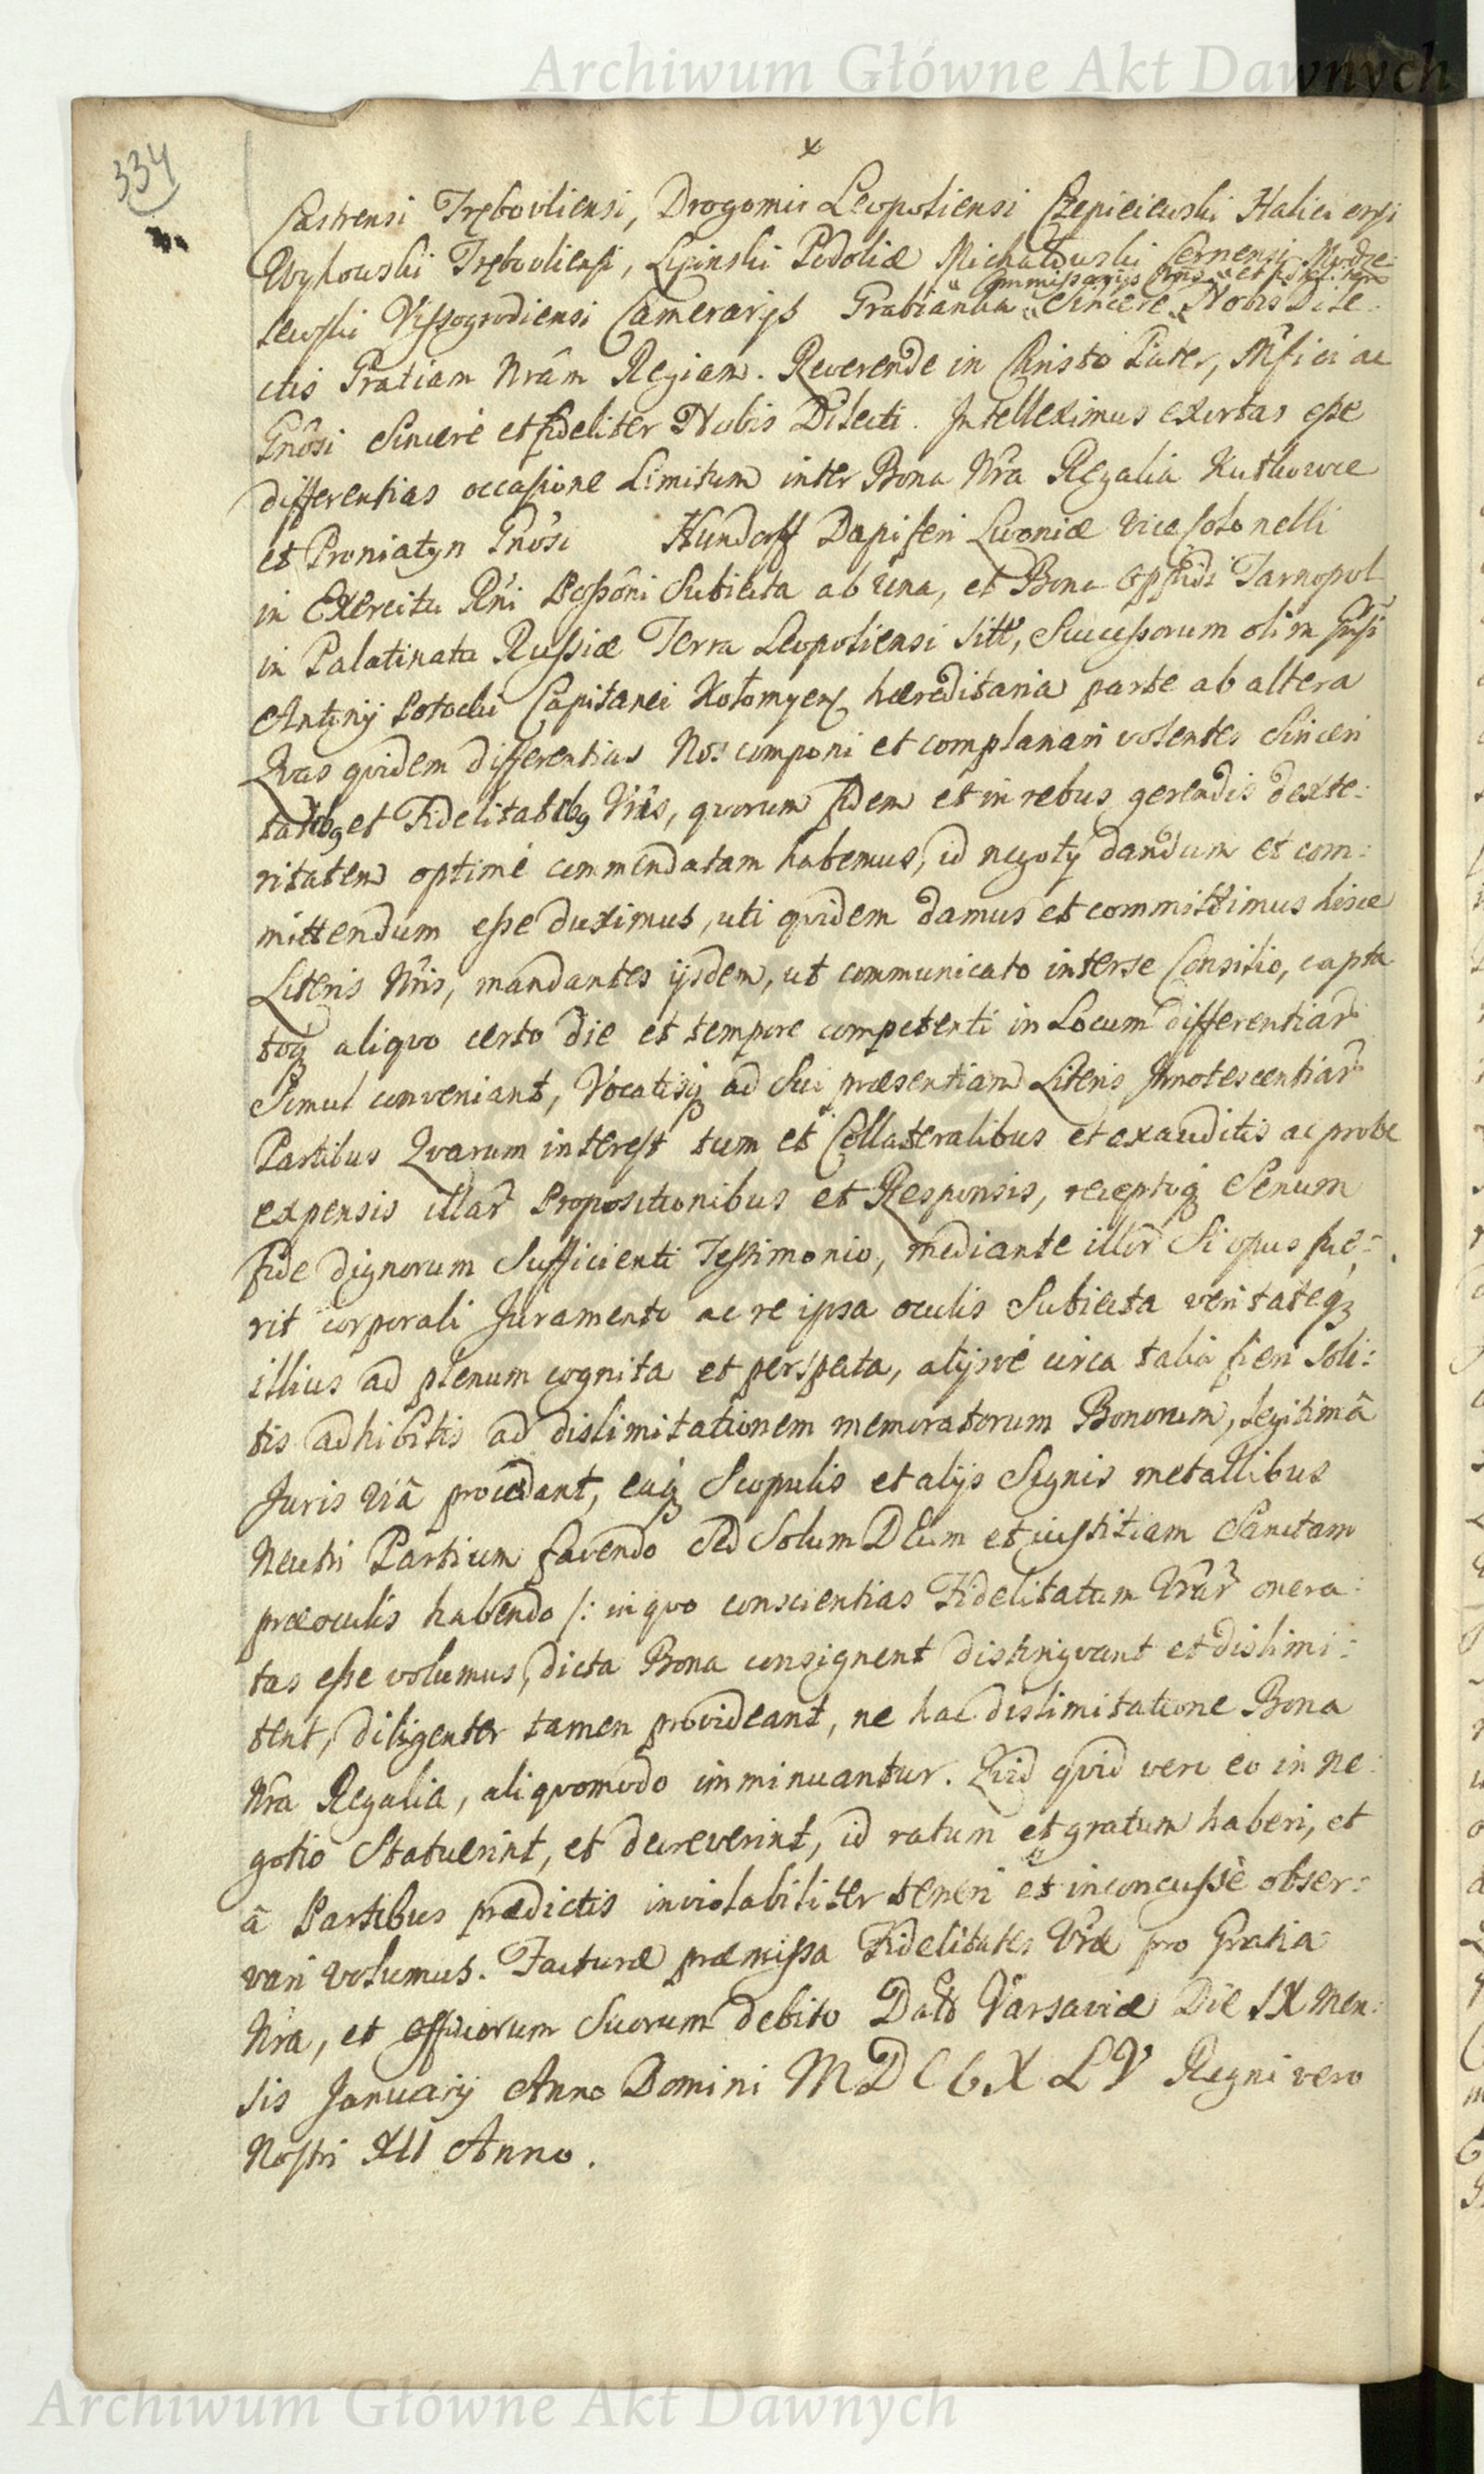 Archiwum Główne Akt Dawnych
334
x
Castrensi Trębovliensi, Drogomir Leopoliensi Czepieiewski Halici ensi
Wyhowski Trębovliensi, Lipinski Podoliæ Michałowski Cernensi Modze:
Commissarijs Nris et fideliter
lewski Vissogrodiensi Camerarijs Grabianka Sincere Nobis Dile:
ctis Gratiam Nrâm Regiam. Reverende in Christo Pater, Mfici ac
Gnosi Sincerè et fideliter Nobis Dilecti. Intelleximus exortas esse
differentias occasione Limitum inter Bona Nra Regalia Kutkowce
et Proniatyn Gnosi Hundorff Dapiferi Livoniæ Vice Colonelli
in Exercitu Rni Possôni Subiecta ab una, et Bona Oppidi Tarnopol
in Palatinatu Russiæ Terra Leopoliensi sitt, Successorum olim Gnsi
Antonij Potocki Capitanei Kołomyen hæreditaria parte ab altera
Qvas qvidem differentias Nos componi et complanari volentes Sinceri
tatibg et Fidelitatibg Vris, qvorum fidem et in rebus gerendis dexte:
ritatem optimè commendatam habemus, id negotÿ dandum et com:
mittendum esse duximus, uti qvidem damus et committimus hisce
Literis Nris, mandantes ijsdem, ut communicato interse Consilio, capta
toq aliqvo certo die et tempore competenti in Locum differentiar
Simul conveniant, Vocatisq ad Sui præsentiam Literis Innotescentiar
Partibus Qvarum interest tum et Collateralibus et exauditis ac probe
expensis illar Propositionibus et Responsis, receptoq Senum
fide dignorum Sufficienti Testimonio, mediante illor Si opus fue:
rit corporali Juramento ac re ipsa oculis Subiecta veritateq
illius ad plenum cognita et perspecta, alijsvè circa talia fieri Soli:
tis adhibitis ad dislimitationem memoratorum Bonorum, legitimâ
Juris viâ procedant, eaq Scopulis et alijs Signis metallibus
Neutri Partium favendo Sed Solum DEum et iustitiam Sanctam
præ oculis habendo /: in qvo conscientias Fidelitatum Vrar onera:
tas esse volumus, dicta Bona consignent distingvant et dislimi:
tent, diligenter tamen provideant, ne hac dislimitatione Bona
Nra Regalia, aliqvomodo imminuantur. Qvid qvid vero eo in ne:
gotio Statuerint, et decreverint, id ratum et gratum haberi, et
â Partibus prædictis inviolabiliter teneri et inconcussè obser:
vari volumus. Facturæ præmissa Fidelitates Vræ pro Gratia
Nra, et officiorum Suorum debito Datt Varsaviæ Die IX Men:
sis Januarij Anno Domini MDCCXLV Regni vero
Nostri XII Anno.
Archiwum Główne Akt Dawnych